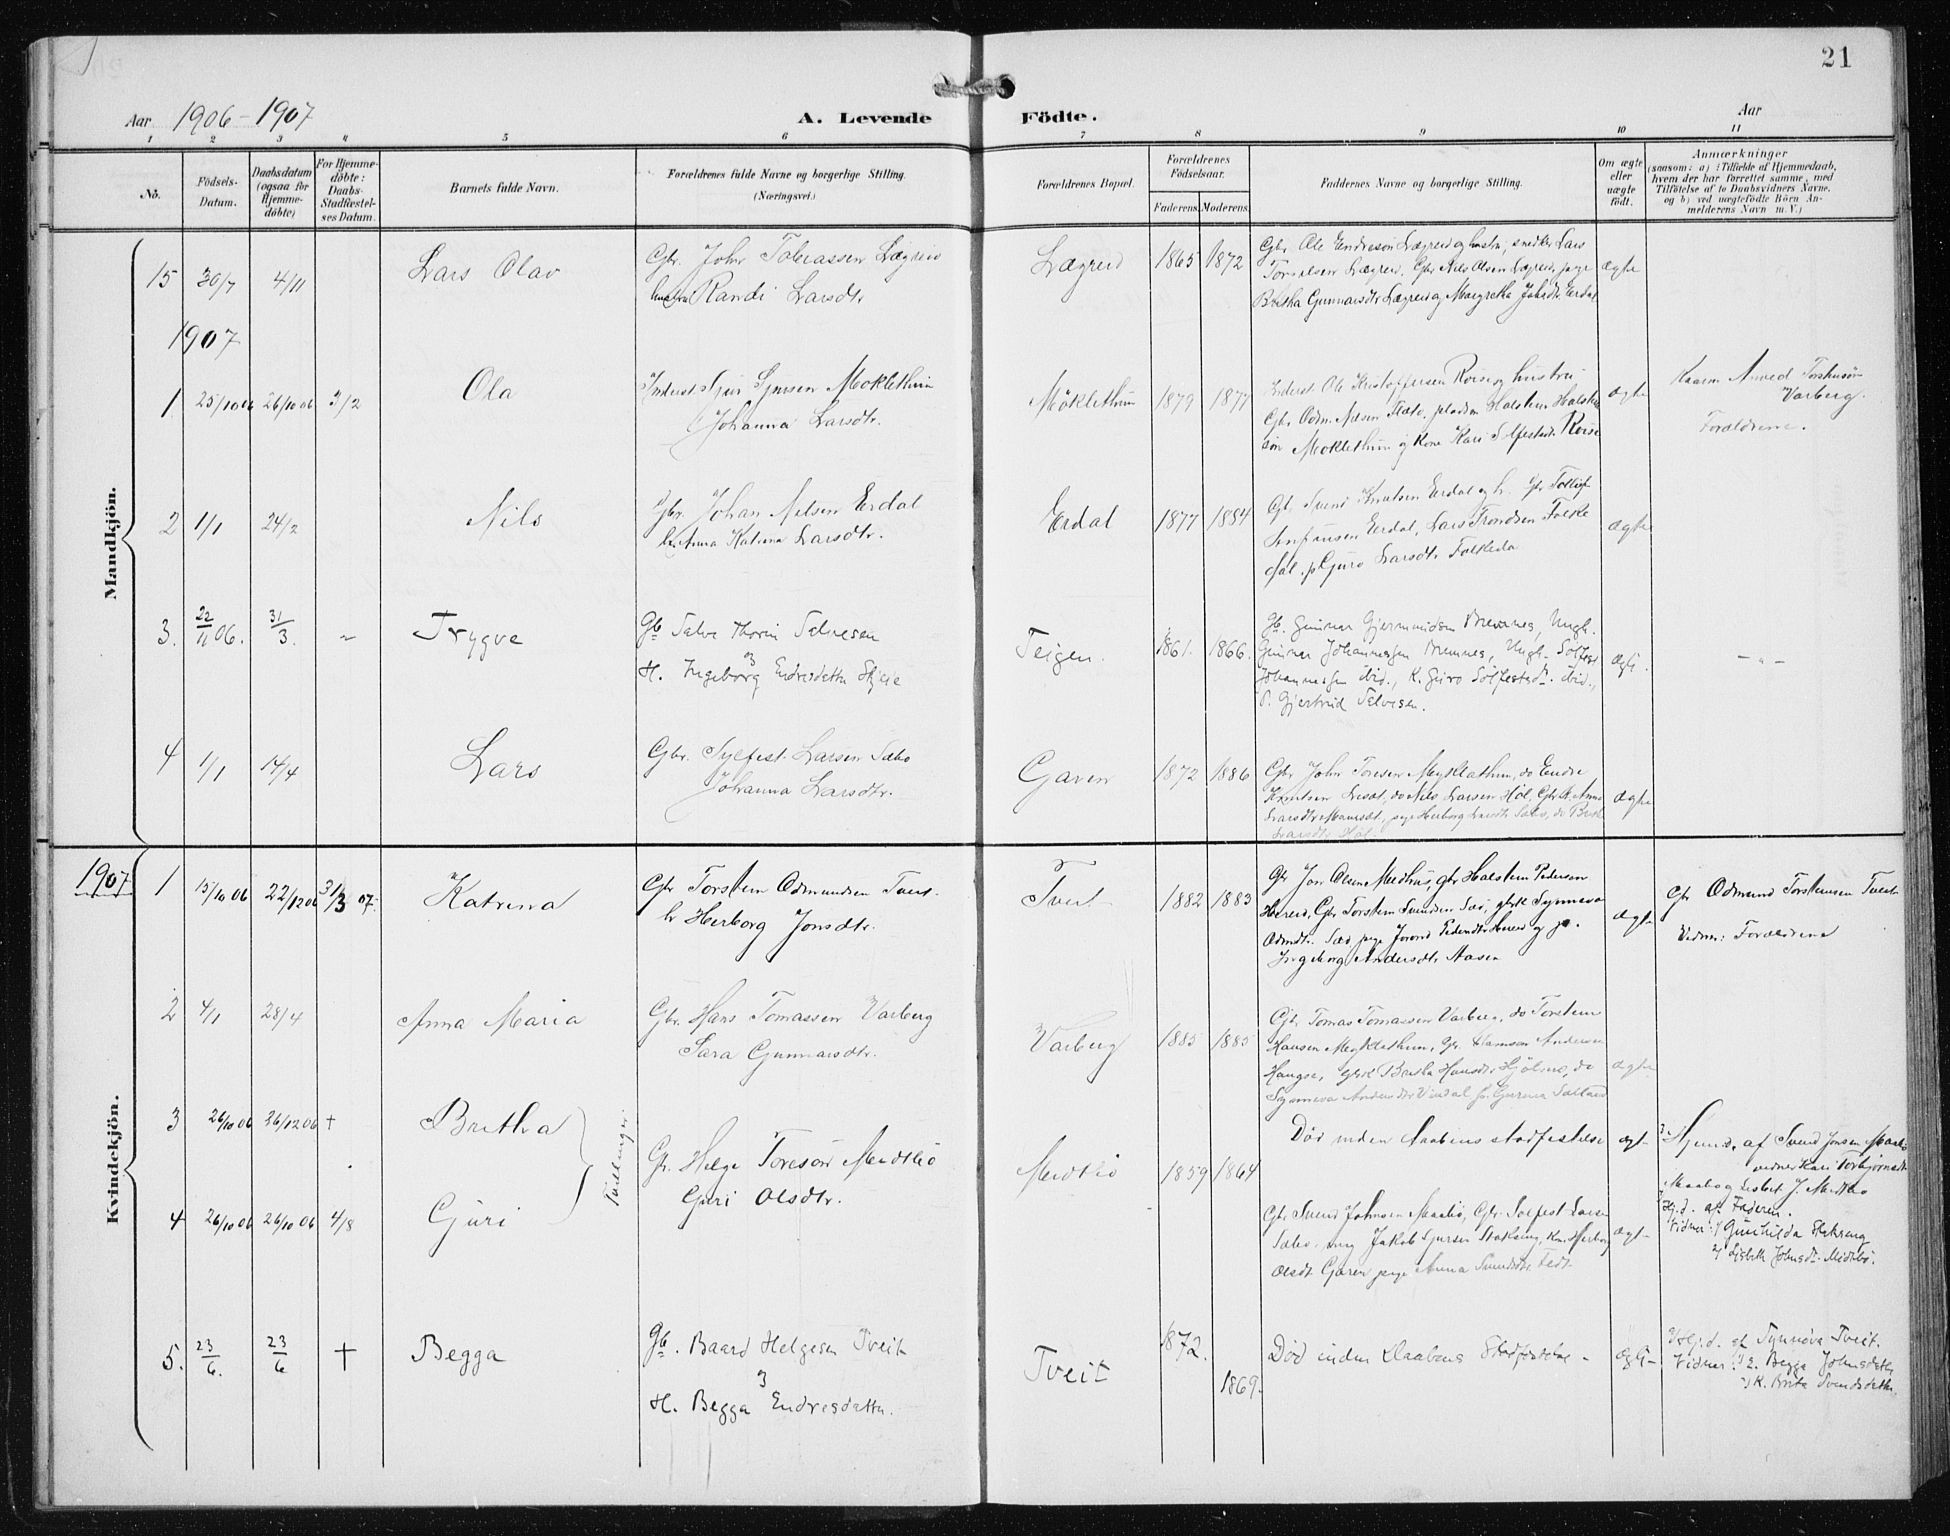 21
Aar 1906-1907
A. Levende
Födte.
Aar
1 2 3 4 5 6 7 8 9 10 11
No.
Födsels-Datum.
Daabsdatum (ogsaa for Hjemmedöbte)
For Hjemmedöbte: Daabs-Stadfæstelses Datum.
Barnets fulde Navn.
Forældrenes fulde Navne og borgerlige Stilling.
(Næringsvei.)
Forældrenes Bopæl.
Forældrenes Födselsaar.
Faderens. Moderens.
Faddernes Navne og borgerlige Stilling.
Om ægte eller uægte födt.
Anmærkninger
(saasom: a) i Tilfælde af Hjemmedaab, hvem der har forrettet samme, med Tilföielse af to Daabsvidners Navne. og b) ved uægtefödte Börn Anmelderens Navn m. V.)
Mandkjön.
15 30/7 4/11 Lars Olav
Gbr. John Lægreid
hustru Randi Larsdtr
Lægreid 1865 1872
Gbr. Ole Endresön Lægreid og hustru, snedker Lars
Lægreid, Gbr Nils Olsen Lægreid, pige
Britha Gunnarsdtr Lægreid og Margretha Johsdtr Erdal
ægte
1907
1 25/10 06 26/10 06 3/2 Ola
Inderst Sjur Sjursen Moklethun
Johanna Larsdtr.
Möklethun 1879 1877
Inderst Ole Kristoffersen Roise og hustru
Gbr Odm. Nilsen Flato, pladsm Halsten Halsten
sön Moklethun og Kone Kari Sylfestsdtr Roise
ægte
Varberg.
Forældrene.
2 1/1 24/2 Nils
Gbr. Johan Nilsen Erdal
h. Anna Katrina Larsdtr.
Erdal 1877 1884
Gbr Svend Knutsen Erdal og h. Gbr Tollef
Erdal, Lars Trondsen Folke
dal, p Guro Larsdtr Folkeda
ægte
3. 22/11 06. 31/3. " Trygve
Gb Salve Thorin Salvesen
H. Ingeborg Endresdatter Skjeie
Teigen. 1861. 1866.
Gb. Gunnar Gjermundsen Bremnes, Ungk.
Gunnar Johannessen Bremnes, Ungk. Sölfest
Johannessen ibid., K. Guro Sölfestsdr. ibid.,
P. Gjertrud Salvesen.
ægte.
- " -
4 1/1 14/4 Lars
Gbr. Sylfest Larsen Sæbo
Johanna Larsdtr.
Garen 1872 1886
Gbr John Toresen Myklathun, do Endre
Knutsen Lisæt, do Nils Larsen Hol, Gbr k. Anna
Larsdtr, pige Herborg Larsdtr Sæbo, do Brita
Larsdtr Hol.
ægte
Kvindekjön.
1907 1 15/10 06 22/12 06 31/3 07. Katrina
Gbr Torstein Odmundsen Tveit
h Herborg Jonsdtr.
Tveit 1882 1883
Gbr Jon Olsen Medhus, gbr Halstein Pederson
Hereid, Gbr Torstein Svendsen Sæd, gbrk Synneva
Odmdtr. Sæd pige Jorond Pedersdtr Hereid og p.
Ingeborg Andersdtr Aasen
ægte
Gbr Odmund Torsteinsen Tveit
Vidner: Forældrene
2 4/1 28/4 Anna Maria
Gbr. Hans Tomassen Varberg
Sara Gunnarsdtr.
Varberg 1885 1885
Gbr Tomas Tomassen Varberg, do Torstein
Hansen Myklathun, Gbr. Samson Andersen
Hauge, gbrk Britha Hansdtr Hjölmo, do
Synneva Andersdtr Vindal, p. Gurina
ægte
3 26/10 06 26/12 06 † Britha
Tvillinger
Gbr. Helge Toresön Medtbö
Guri Olsdtr.
Medtbö 1859 1864
Död inden Daabens stadfestelse
ægte
Hjemd. af Svend Jonsen Maabö
vidner Kari Torbjörnsdtr
Maabö og Lisbet J. Medtbö
4 26/10 06 26/10 06 4/8 Guri
Gbr Svend Johnsen Maabö, Gbr. Solfest Larsen
Sæbö, ung Jakob Sjursen, Kone Herborg
Olsdt Garen pige Anna Svendsdtr. Tedt
ægte
Hj.d. af Faderen.
Vidner: 1/ Gunhilda
2/ Lisbeth Johnsdr. Midtbö.
5. 23/6. 23/6 † Begga
Gb. Baard Helgesen Tveit
H. Begga Endresdatter.
Tveit 1872. 1869.
Död inden Daabens Stadfæstelse -
ægte
Hj.d. af Synnöva Tveit.
Vidner: 1/ E. Begga Johnsdatter,
2/ K. Brita Svendsdatter.